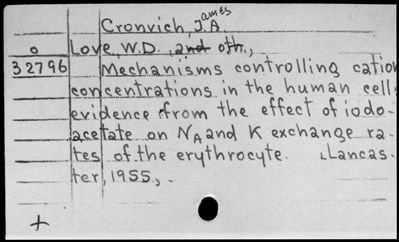 Cronvich, James A.
o Love, W.D. , and oth.,
32796 Mechanisms controlling cation
concentrations in the human cell:
evidence from the effect of iodo-
acetate on Na and K exchange ra-
tes of the erythrocyte. Lancas-
ter, 1955,.
+